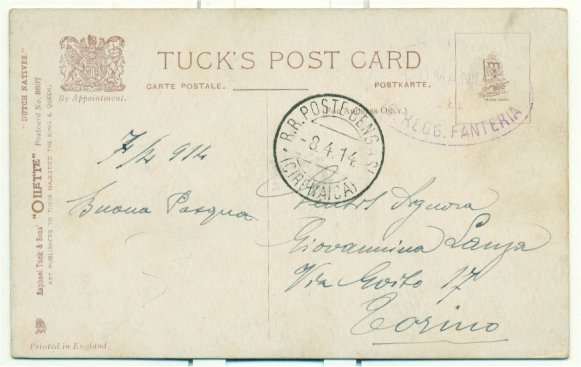 TUCK'S POST CARD
CARTE POSTALE.
POSTKARTE.
(For Address Only.)
By Appointment.
"DUTCH NATIVES."
Postcard No. 8607
"OILETTE"
Raphael Tuck & Sons'
ART PUBLISHERS TO THEIR MAJESTIES THE KING & QUEEN.
R.R. POSTE BENGASI
-8.4.14.
(CIRENAICA)
REGG. FANTERIA
7/4 914
Buona Pasqua
Signora
Giovannina Lanza
Via Goito 17
Torino
Printed in England.